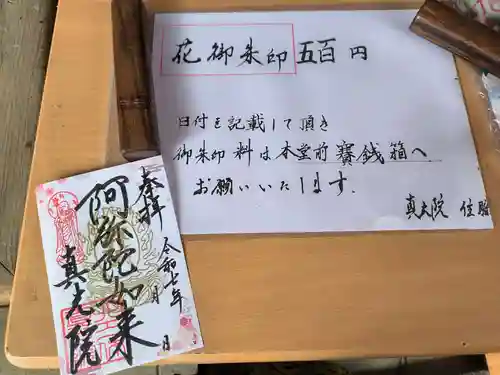 花御朱印 五百円
日付を記載して頂き
御朱印料は本堂前賽銭箱へ
お願いいたします.
真光院 住職
奉拝 令和七年 月 日
阿弥陀如来
真光院